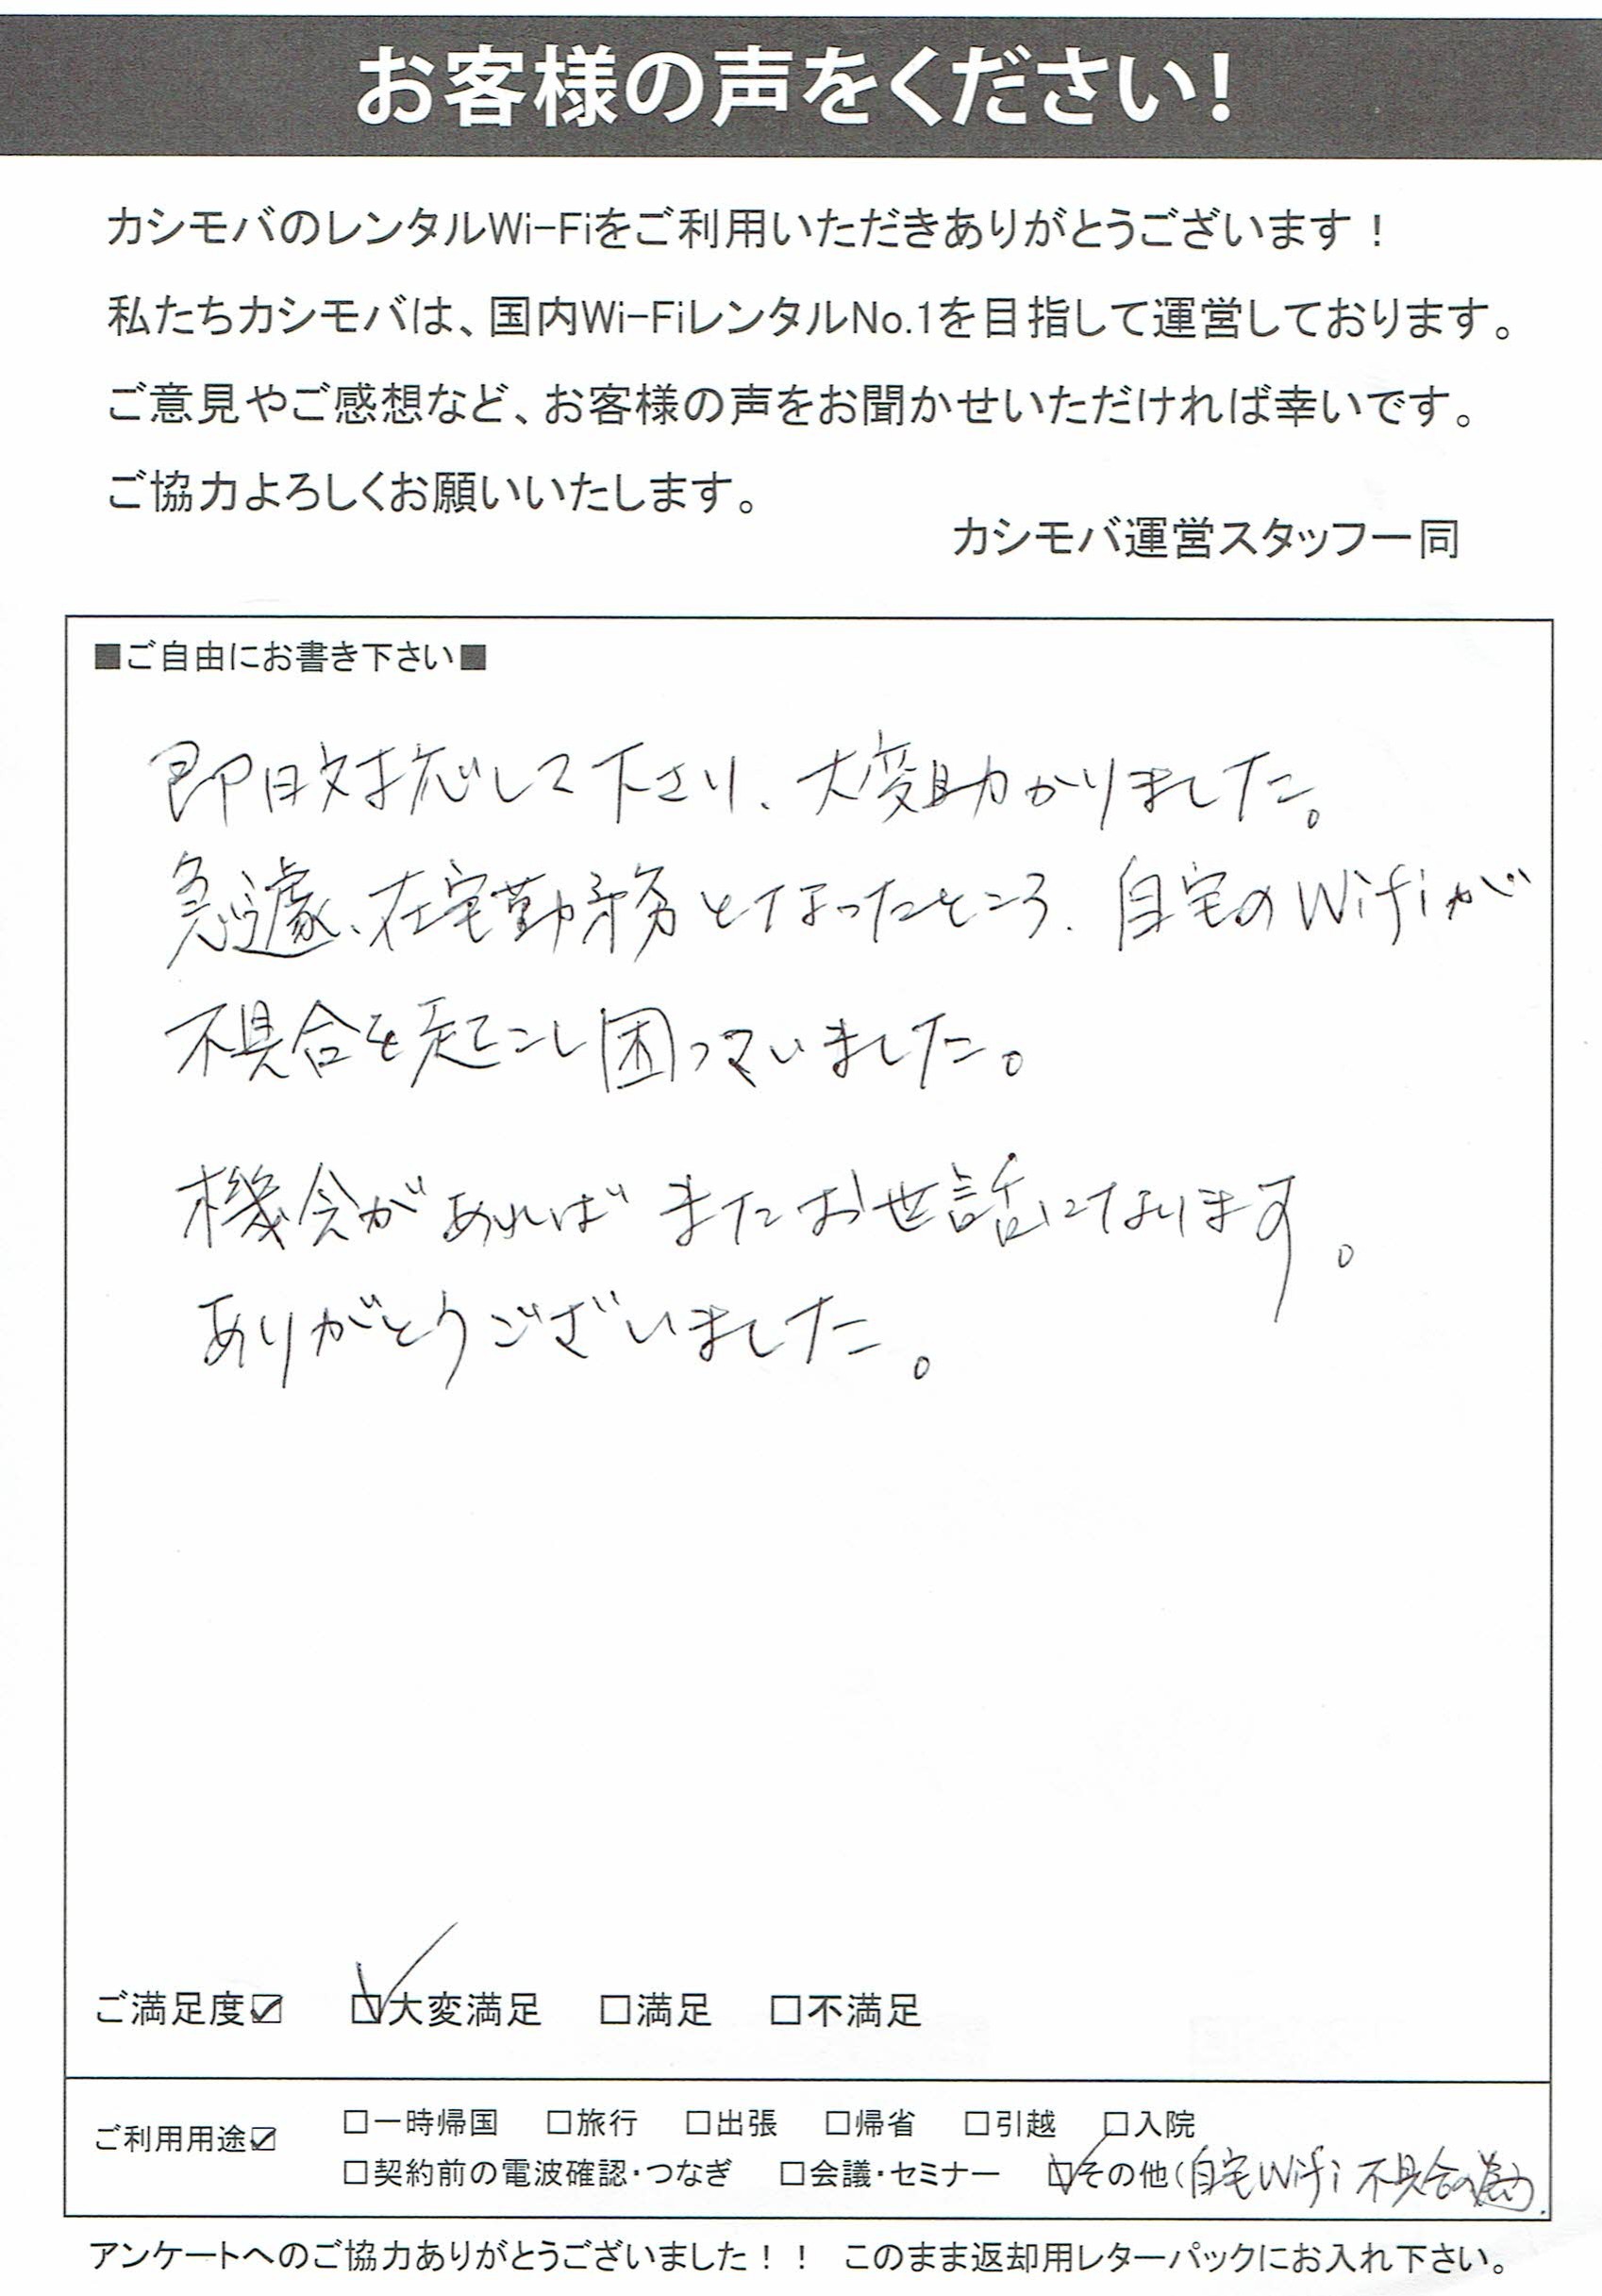 お客様の声をください!
カシモバのレンタルWi-Fiをご利用いただきありがとうございます！
私たちカシモバは、国内Wi-FiレンタルNo.1を目指して運営しております。
ご意見やご感想など、お客様の声をお聞かせいただければ幸いです。
ご協力よろしくお願いいたします。
カシモバ運営スタッフ一同
■ご自由にお書き下さい■
即日対応して下さり、大変助かりました。
急遽、在宅勤務となったところ、自宅のWifiが
不具合を起こし困っていました。
機会があればまたお世話になります。
ありがとうございました。
ご満足度☑ ☑大変満足 □満足 □不満足
ご利用用途☑ □一時帰国 □旅行 □出張 □帰省 □引越 □入院
□契約前の電波確認・つなぎ □会議・セミナー ☑その他(自宅Wifi不具合の為)
アンケートへのご協力ありがとうございました！！ このまま返却用レターパックにお入れ下さい。